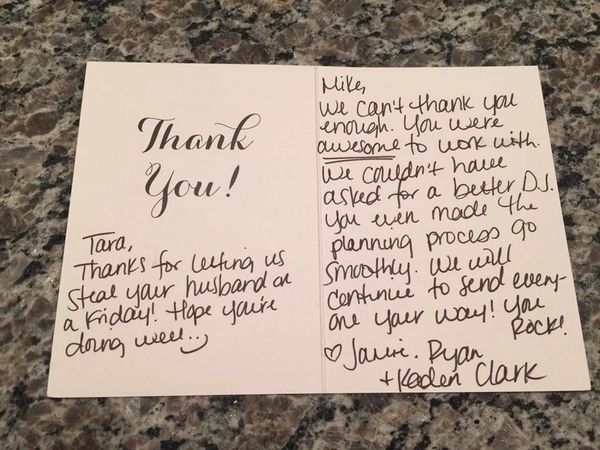 Thank
You!
Tara,
Thanks for letting us
steal your husband on
a Friday! Hope you're
doing well :)
Mike,
We can't thank you
enough. You were
awesome to work with.
We couldn't have
asked for a better DJ.
You even made the
planning process go
smoothly. We will
continue to send every-
one your way! You
Rock!
♡ Jamie, Ryan
+ Kaden Clark